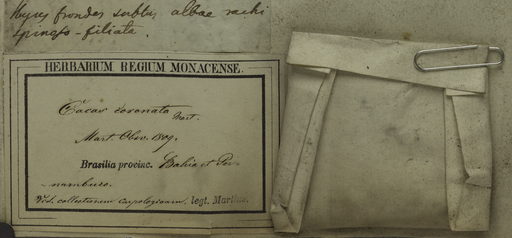 frondes subtus albae rachi
spinoso-filiata.
HERBARIUM REGIUM MONACENSE.
Cocos coronata Mart.
Mart. Obs. 
Brasilia provinc. Bahia et Per-
nambuco.
Vid. collectionem carpologicam. legt. Martius.